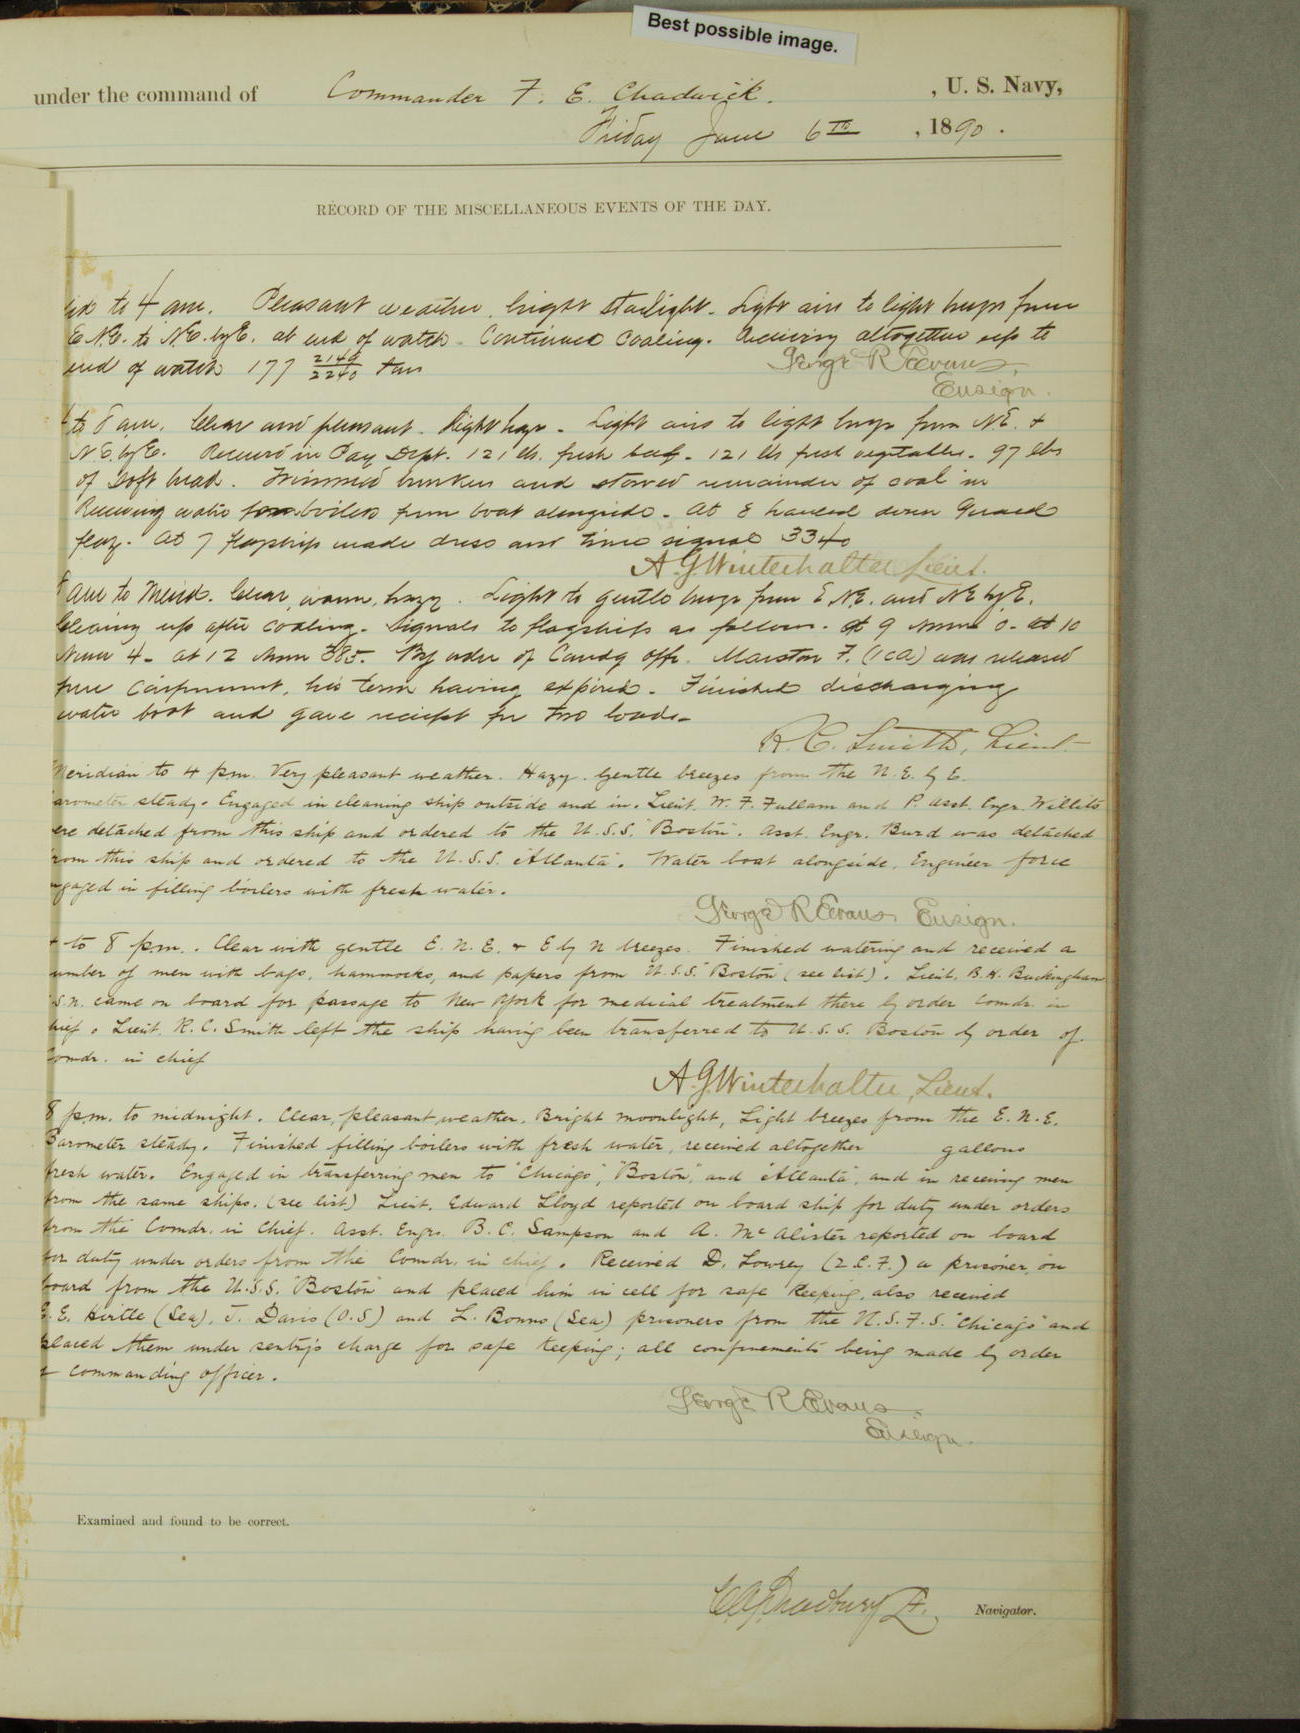 Best possible image.
under the command of Commander F. E. Chadwick. , U. S. Navy,
Friday June 6th , 1890.
RECORD OF THE MISCELLANEOUS EVENTS OF THE DAY.
to 4 am. Pleasant weather, bright starlight. Light airs to light breeze from
E.N.E. to N.E. by E. at end of watch. Continued coaling. Receiving altogether up to
end of watch 177 2140/2240 tons
George R Evans,
Ensign.
to 8 am. Clear and pleasant. Slight haze. Light airs to light breeze from NE. &
N.E. by E. Received in Pay Dept. 121 lbs. fresh beef. 121 lbs fresh vegetables. 97 lbs
of soft bread. Trimmed bunkers and stowed remainder of coal in
Receiving water for boilers from boat alongside. At 8 hauled down Guard
flag. At 7 flagship made dress and time signal 3340
A. G. Winterhalter Lieut.
am to Merid. Clear, warm, hazy. Light to gentle breeze from E.N.E. and NE by E.
Cleaning up after coaling. Signals to flagship as follows. At 9 0. At 10
4. At 12 385. By order of Comdg offr. Marston F. (1ca) was released
from confinement, his term having expired. Finished discharging
water boat and gave receipt for two loads.
R. C. Smith, Lieut.
Meridian to 4 p.m. Very pleasant weather. Hazy. Gentle breezes from the N.E. by E.
arometer steady. Engaged in cleaning ship outside and in. Lieut. W. F. Fullam and P. Asst. Engr. Willits
ere detached from this ship and ordered to the U.S.S. "Boston". Asst. Engr. Burd was detached
rom this ship and ordered to the U.S.S. "Atlanta". Water boat alongside. Engineer force
ngaged in filling boilers with fresh water.
George R Evans Ensign.
to 8 p.m. Clear with gentle E.N.E. & E by N breezes. Finished watering and received a
umber of men with bags, hammocks, and papers from U.S.S. "Boston" (see list). Lieut. B. H. Buckingham
S.N. came on board for passage to New York for medical treatment there by order Comdr. in
hief. Lieut. R. C. Smith left the ship having been transferred to U.S.S. Boston by order of
Comdr. in chief
A. G. Winterhalter, Lieut.
8 p.m. to midnight. Clear, pleasant weather. Bright moonlight, Light breezes from the E.N.E.
Barometer steady. Finished filling boilers with fresh water, received altogether gallons
fresh water. Engaged in transferring men to "Chicago", "Boston", and "Atlanta", and in receiving men
from the same ships. (see list) Lieut. Edward Lloyd reported on board ship for duty under orders
from the Comdr. in Chief. Asst. Engrs. B. C. Sampson and A. McAlister reported on board
for duty under orders from the Comdr. in chief. Received D. Lowrey (2.C.F.) a prisoner, on
board from the U.S.S. "Boston" and placed him in cell for safe keeping, also received
E. Hirtle (Sea), J. Davis (O.S) and L. Bonno (Sea) prisoners from the U.S.F.S. "Chicago" and
placed them under sentry's charge for safe keeping; all confinements being made by order
commanding officer.
George R Evans,
Ensign.
Examined and found to be correct.
Bradbury Lt. Navigator.